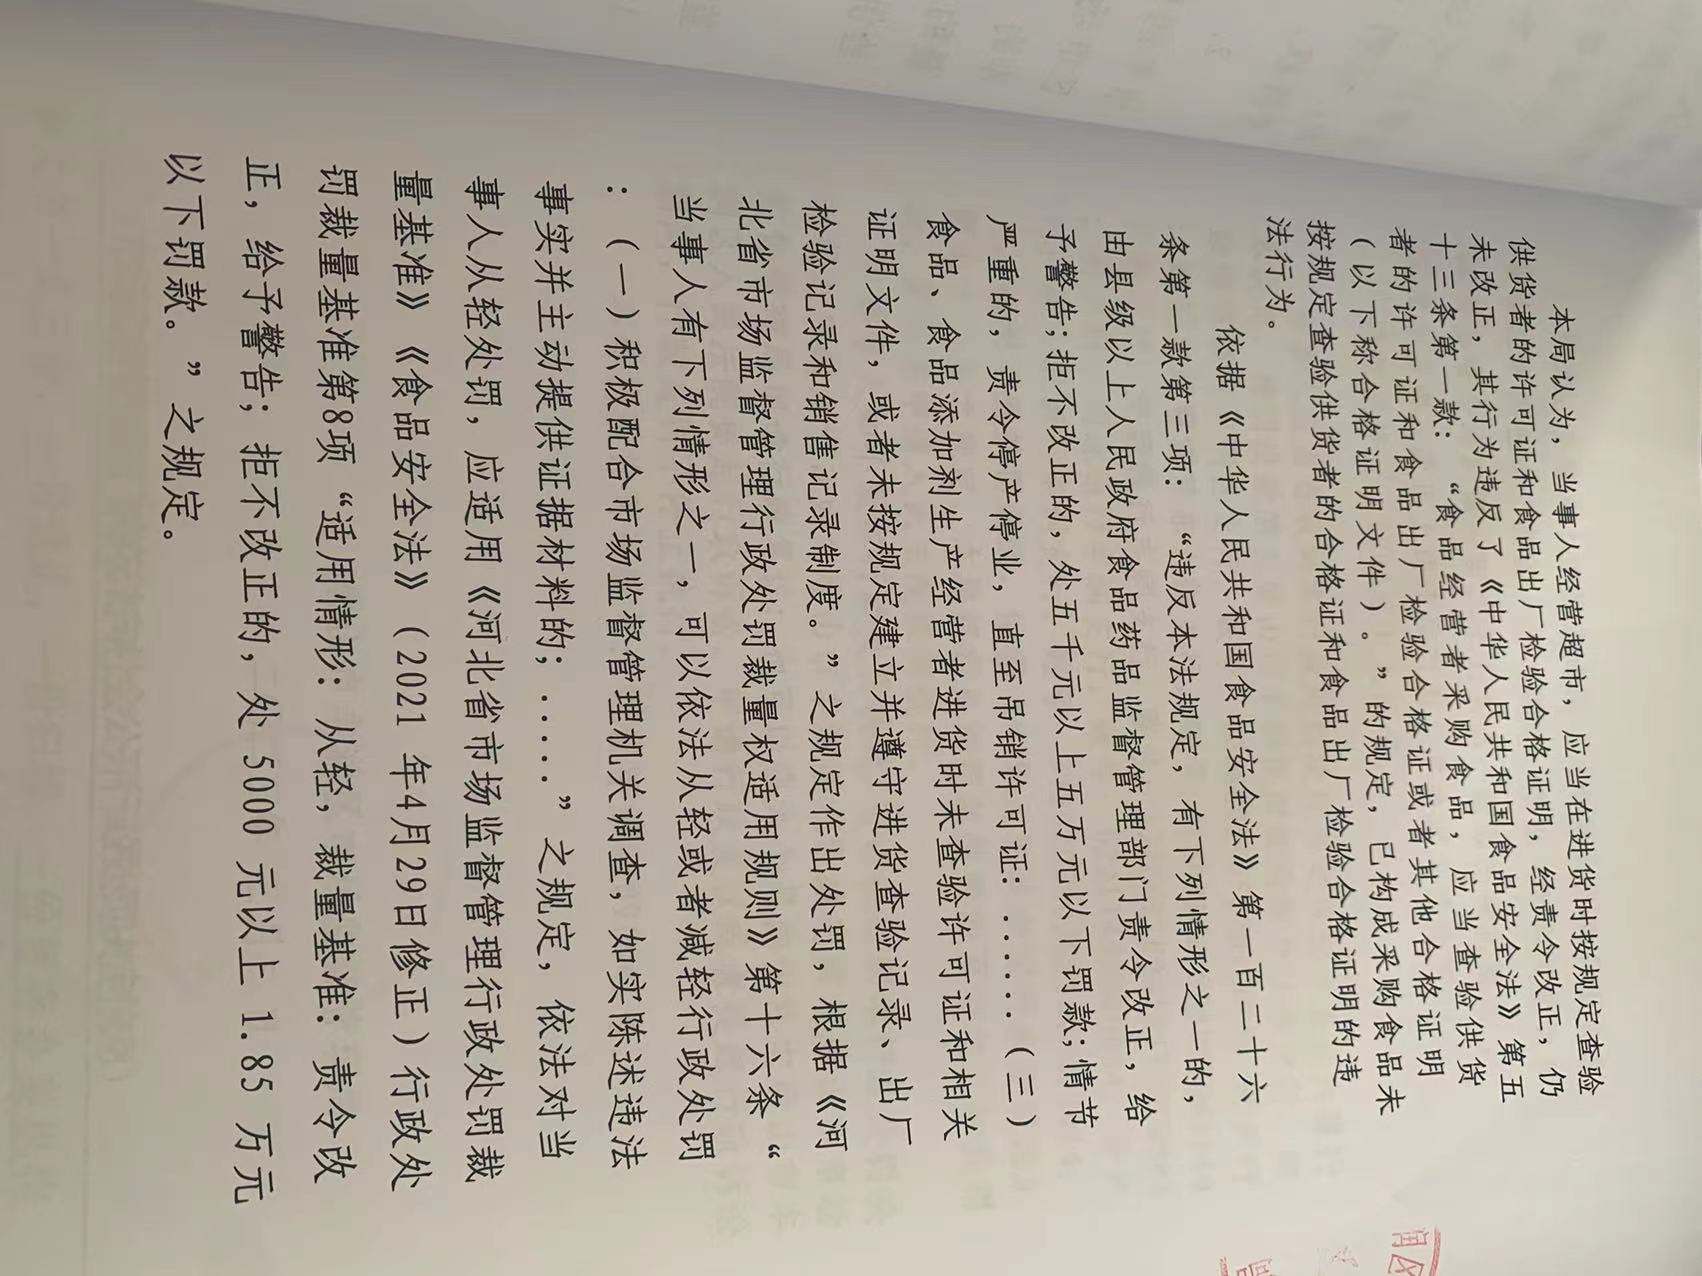 本局认为，当事人经营超市，应当在进货时按规定查验
供货者的许可证和食品出厂检验合格证明，经责令改正，仍
未改正，其行为违反了《中华人民共和国食品安全法》第五
十三条第一款：“食品经营者采购食品，应当查验供货
者的许可证和食品出厂检验合格证或者其他合格证明
（以下称合格证明文件）。”的规定，已构成采购食品未
按规定查验供货者的合格证和食品出厂检验合格证明的违
法行为。
依据《中华人民共和国食品安全法》第一百二十六
条第一款第三项：“违反本法规定，有下列情形之一的，
由县级以上人民政府食品药品监督管理部门责令改正，给
予警告；拒不改正的，处五千元以上五万元以下罚款；情节
严重的，责令停产停业，直至吊销许可证：......（三）
食品、食品添加剂生产经营者进货时未查验许可证和相关
证明文件，或者未按规定建立并遵守进货查验记录、出厂
检验记录和销售记录制度。”之规定作出处罚，根据《河
北省市场监督管理行政处罚裁量权适用规则》第十六条“
当事人有下列情形之一，可以依法从轻或者减轻行政处罚
：（一）积极配合市场监督管理机关调查，如实陈述违法
事实并主动提供证据材料的；......”之规定，依法对当
事人从轻处罚，应适用《河北省市场监督管理行政处罚裁
量基准》《食品安全法》（2021年4月29日修正）行政处
罚裁量基准第8项“适用情形：从轻，裁量基准：责令改
正，给予警告；拒不改正的，处5000元以上1.85万元
以下罚款。”之规定。